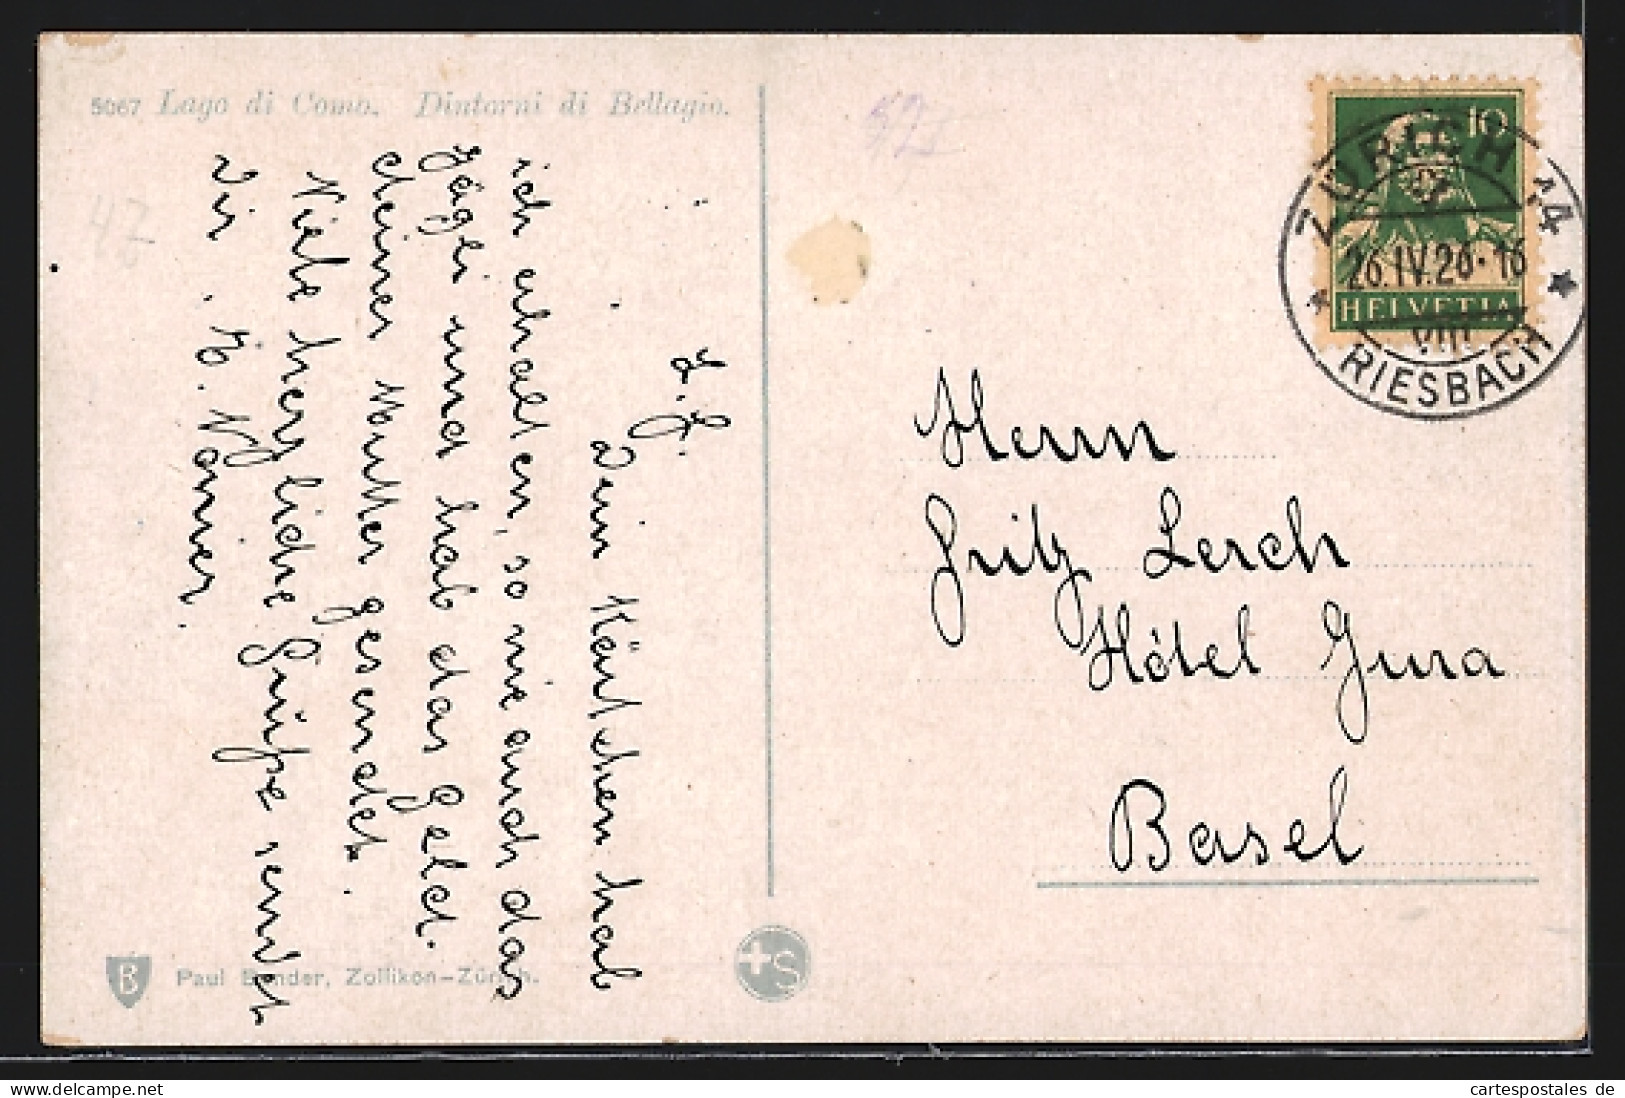 5067 Lago di Como. Dintorni di Bellagio.
L. F.
Dein Kärtchen hab
ich erhalten, so wie auch das
Jägli und hab das Geld.
deiner Mutter gesendet.
Viele herzlidhe Grüße sendet
Dir . H.
47
10
HELVETIA
ZÜRICH 14
26.IV.26·16
VIII
RIESBACH
Herrn
Fritz Lerch
Hôtel Jura
Basel
B
Paul Bender, Zollikon-Zürich.
+S
cartespostales de